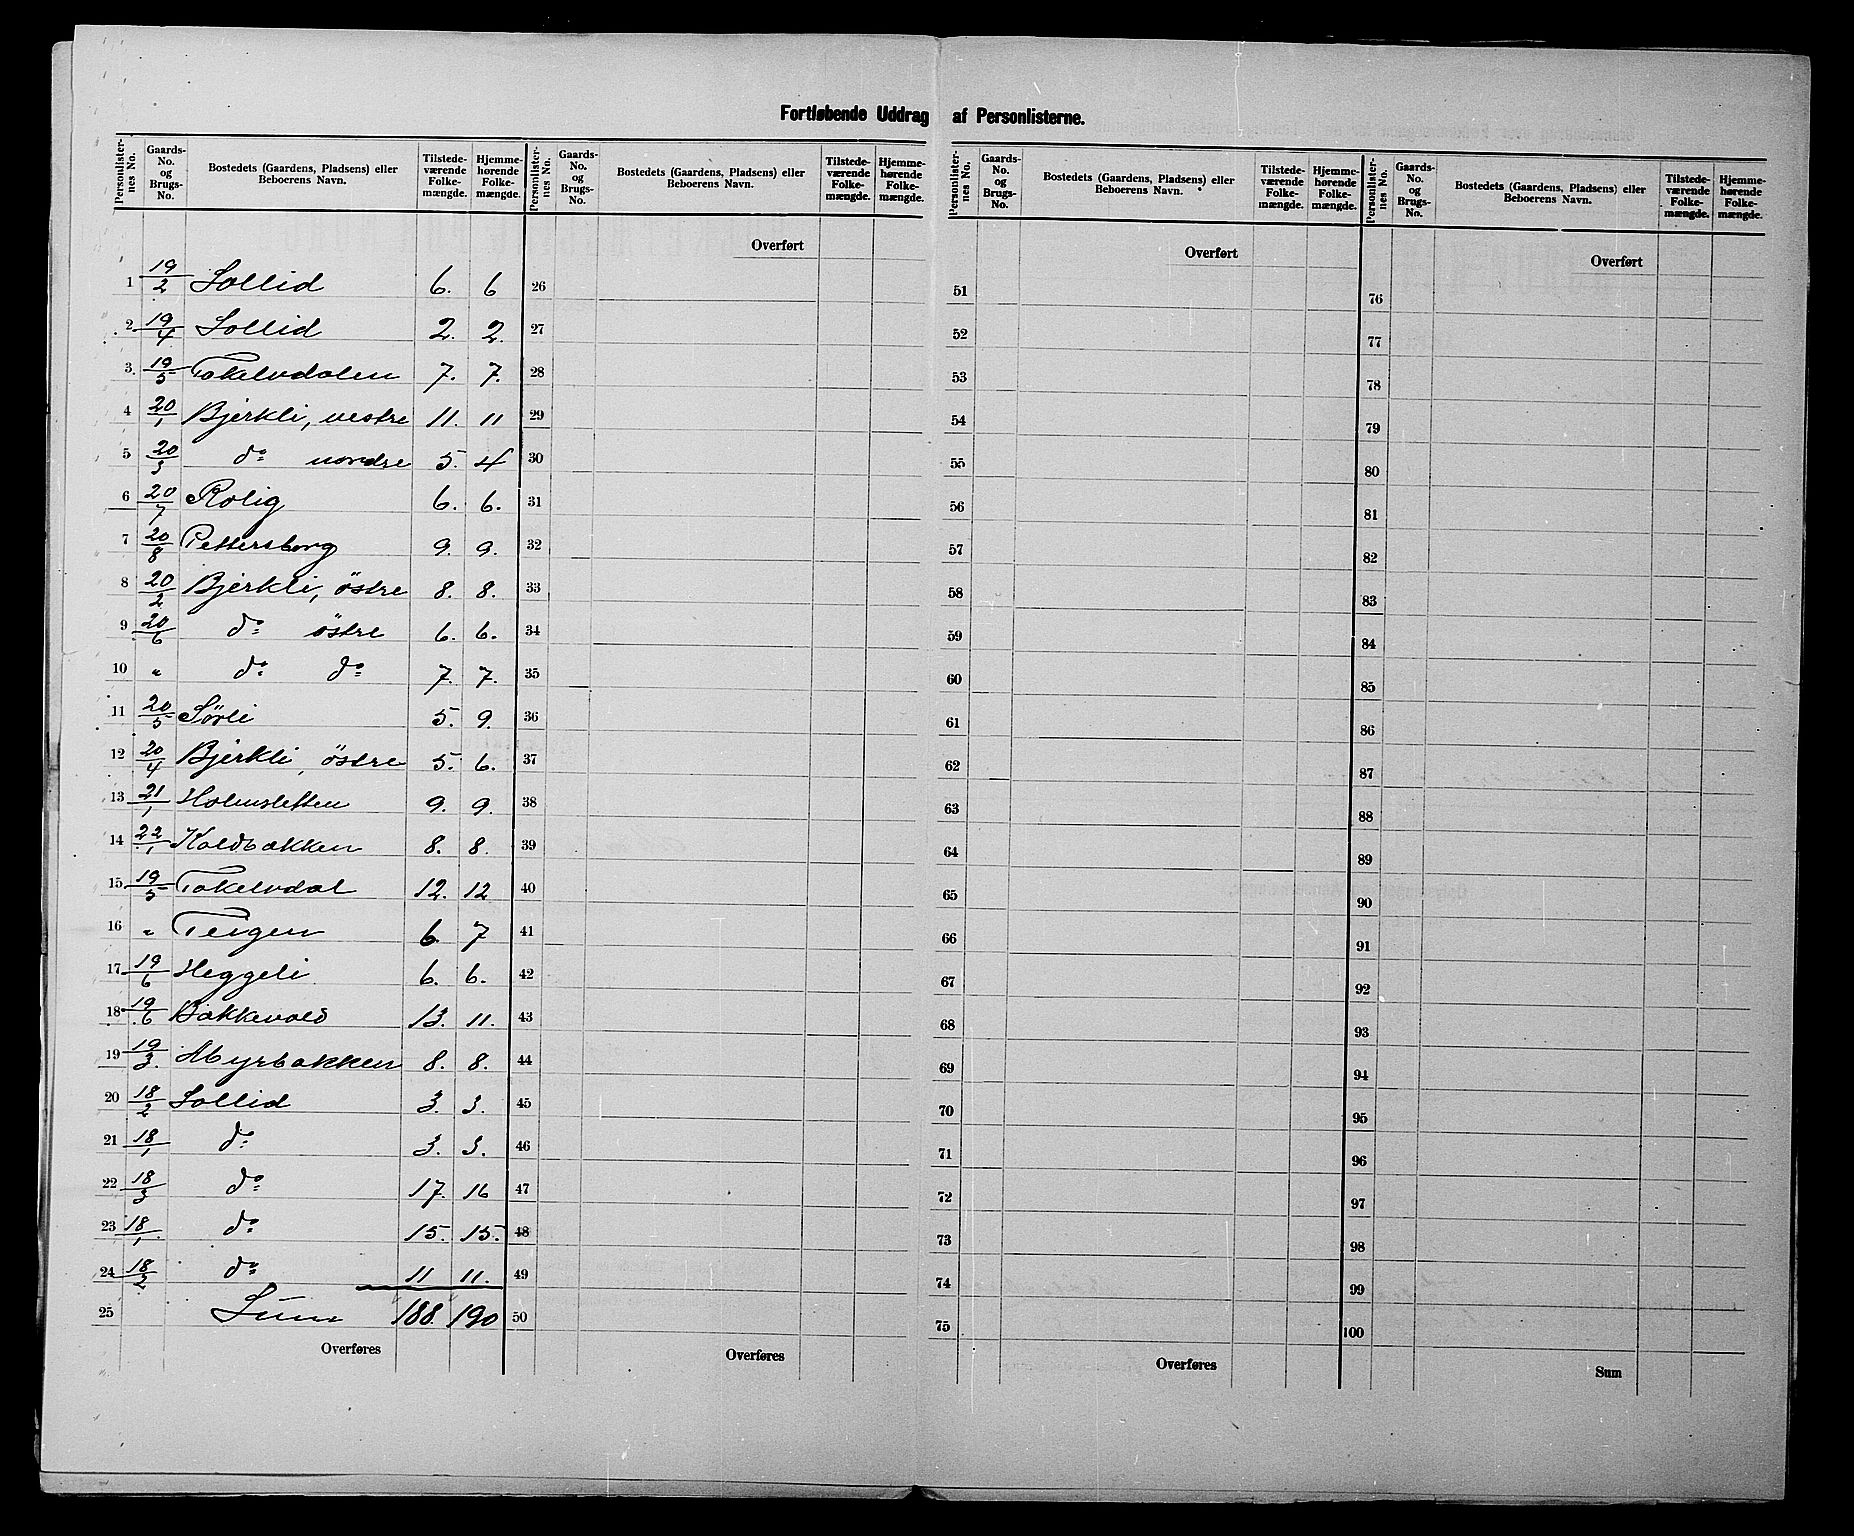 Fortløbende Uddrag af Personlisterne.
Personlister-nes No. | Gaards-No. og Brugs-No. | Bostedets (Gaardens, Pladsens) eller Beboerens Navn. | Tilstede-værende Folke-mængde. | Hjemme-hørende Folke-mængde. | Personlister-nes No. | Gaards-No. og Brugs-No. | Bostedets (Gaardens, Pladsens) eller Beboerens Navn. | Tilstede-værende Folke-mængde. | Hjemme-hørende Folke-mængde. | Personlister-nes No. | Gaards-No. og Brugs-No. | Bostedets (Gaardens, Pladsens) eller Beboerens Navn. | Tilstede-værende Folke-mængde. | Hjemme-hørende Folke-mængde. | Personlister-nes No. | Gaards-No. og Brugs-No. | Bostedets (Gaardens, Pladsens) eller Beboerens Navn. | Tilstede-værende Folke-mængde. | Hjemme-hørende Folke-mængde.
Overført Overført Overført
1 19/2 Sollid 6. 6 26 51 76
2 19/4 Sollid 2. 2. 27 52 77
3 19/5 Takelvdalen 7. 7. 28 53 78
4 20/1 Bjerkli, vestre 11. 11 29 54 79
5 20/3 do nordre 5. 4 30 55 80
6 20/7 Rolig 6. 6. 31 56 81
7 20/8 Pettersborg 9. 9. 32 57 82
8 20/2 Bjerkli, östre 8. 8. 33 58 83
9 20/6 do östre 6. 6. 34 59 84
10 " do do 7. 7. 35 60 85
11 20/5 Sörli 5. 9. 36 61 86
12 20/4 Bjerkli, östre 5. 6. 37 62 87
13 21/1 Holmsletten 9. 9. 38 63 88
14 22/1 Koldbakken 8. 8. 39 64 89
15 19/5 Takelvdal 12. 12 40 65 90
16 " Teigen 6. 7 41 66 91
17 19/6 Heggeli 6. 6. 42 67 92
18 19/6 Bakkevold 13. 11. 43 68 93
19 19/3. Myrbakken 8. 8. 44 69 94
20 18/2 Sollid 3. 3. 45 70 95
21 18/1 do 3. 3. 46 71 96
22 18/3 do 17. 16 47 72 97
23 18/1. do 15. 15. 48 73 98
24 18/2 do 11 11. 49 74 99
25 Sum 188. 190 50 75 100
Overføres Overføres Overføres Sum